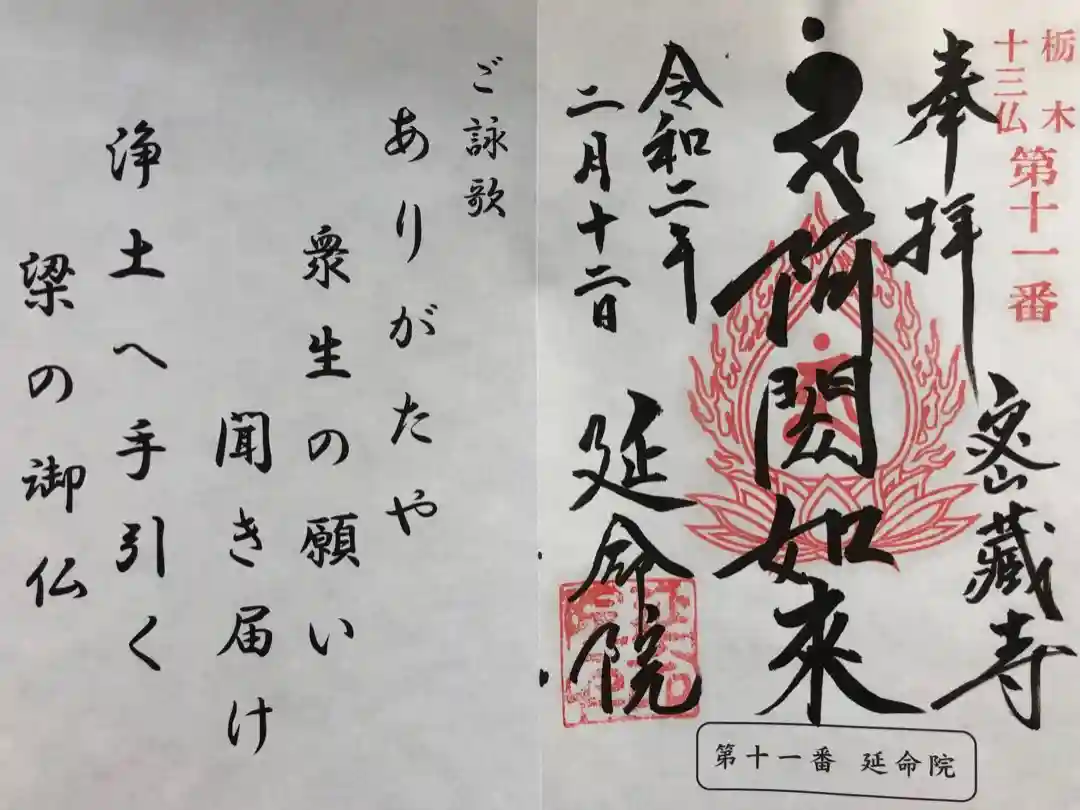 栃木
十三仏
第十一番
奉拝
密蔵寺
阿閦如来
令和二年
二月十二日
延命院
第十一番 延命院
ご詠歌
ありがたや
衆生の願い
聞き届け
浄土へ手引く
梁の御仏